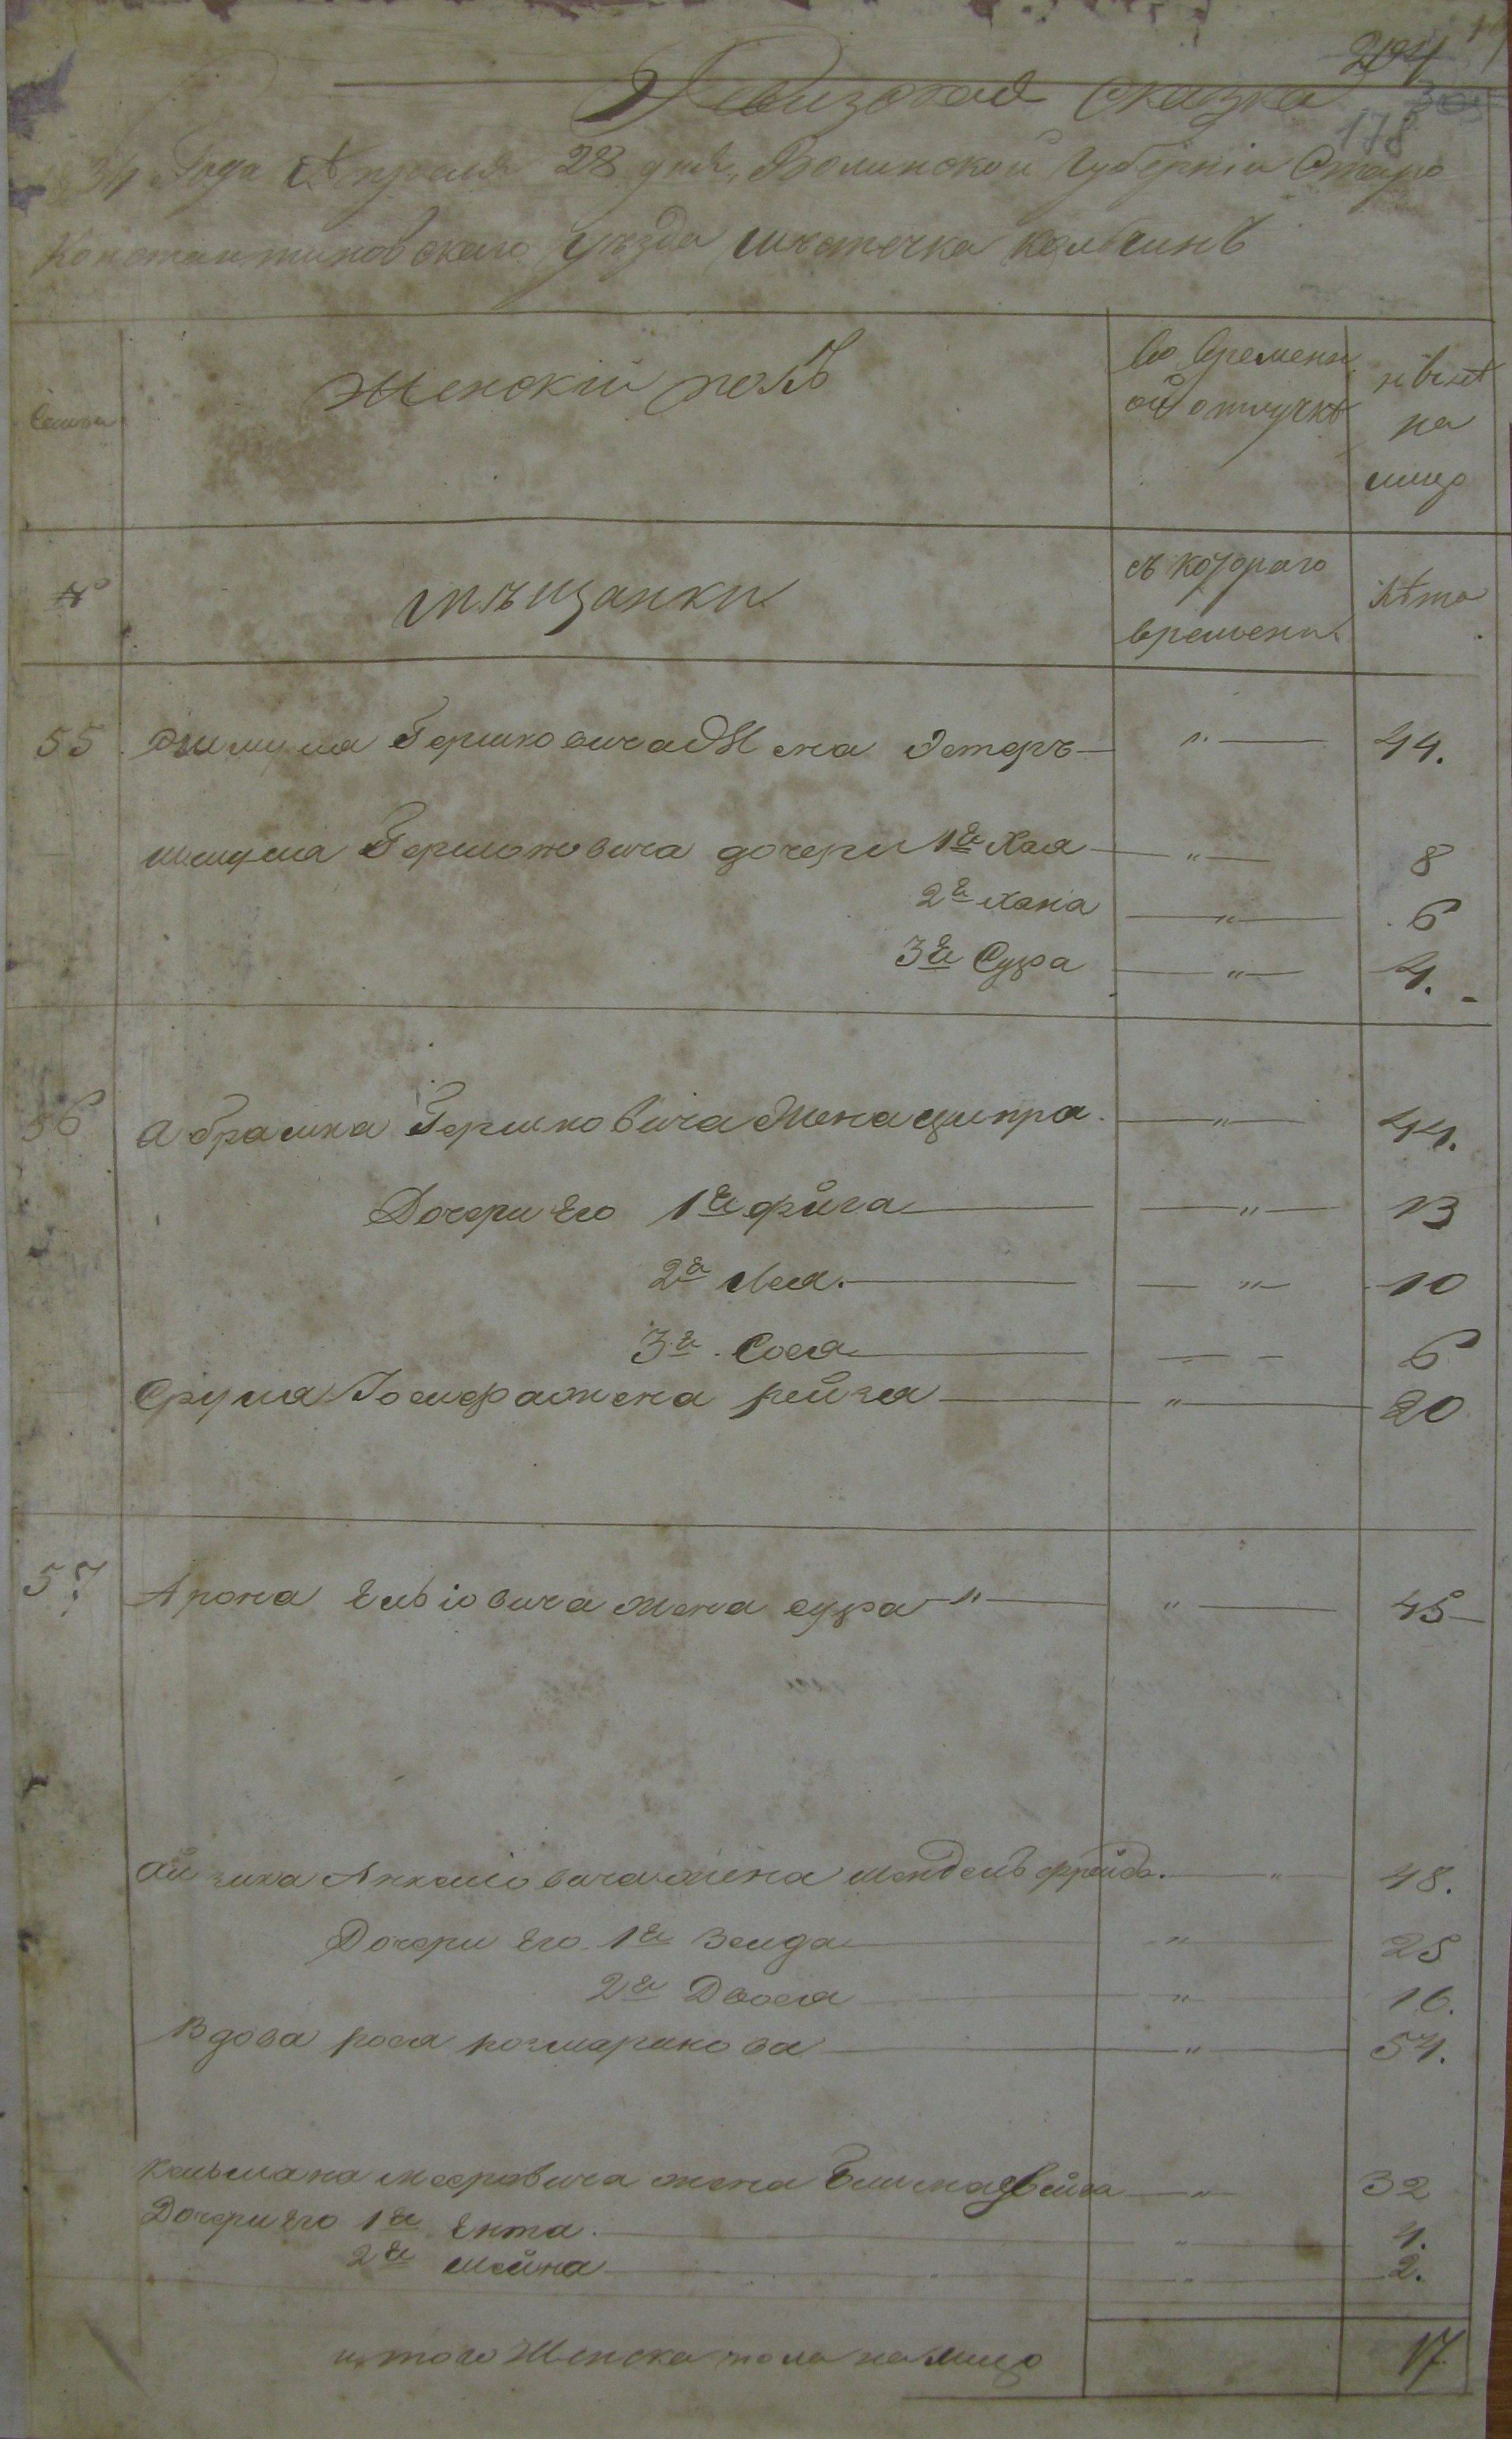 204
178
Ревизская сказка
34 Года Апреля 28 дня, Волинской Губернiи Старо
Константиновскаго уезда местечка Кольчинъ
Семьи
Женскiй полъ
Во времени
ой отлучкѣ
нынѣ
на
лицо
№
мѣщанки
съ котораго
времени
Лѣта
55 Гершковича Жена Эстеръ — " — 44.
Гершковича дочери 1я Хая — " — 8
2я Хана — " — 6
3я Сура — " — 4.
56 Абрамка Гершковича Жена ципра — " — 44.
Дочери его 1я фйга — " — 13
2я Лея. — " — 10
3я Сося — — 6
Срулля Iосифа жена рейзя — " — 20
57 Арона Ельiовича жена сура " — " — 45
Айзика Анкелiовича жена Мендель фрейда. — " — 48.
Дочери его 1я Зелда — " — 25
2я Двося — " — 16.
Вдова рося — " — 54.
Кельмана Мееровича жена — " — 32
Дочери его 1я Ента. — " — 4.
2я Шейна — " — 2.
итого Женска пола на лицо 17